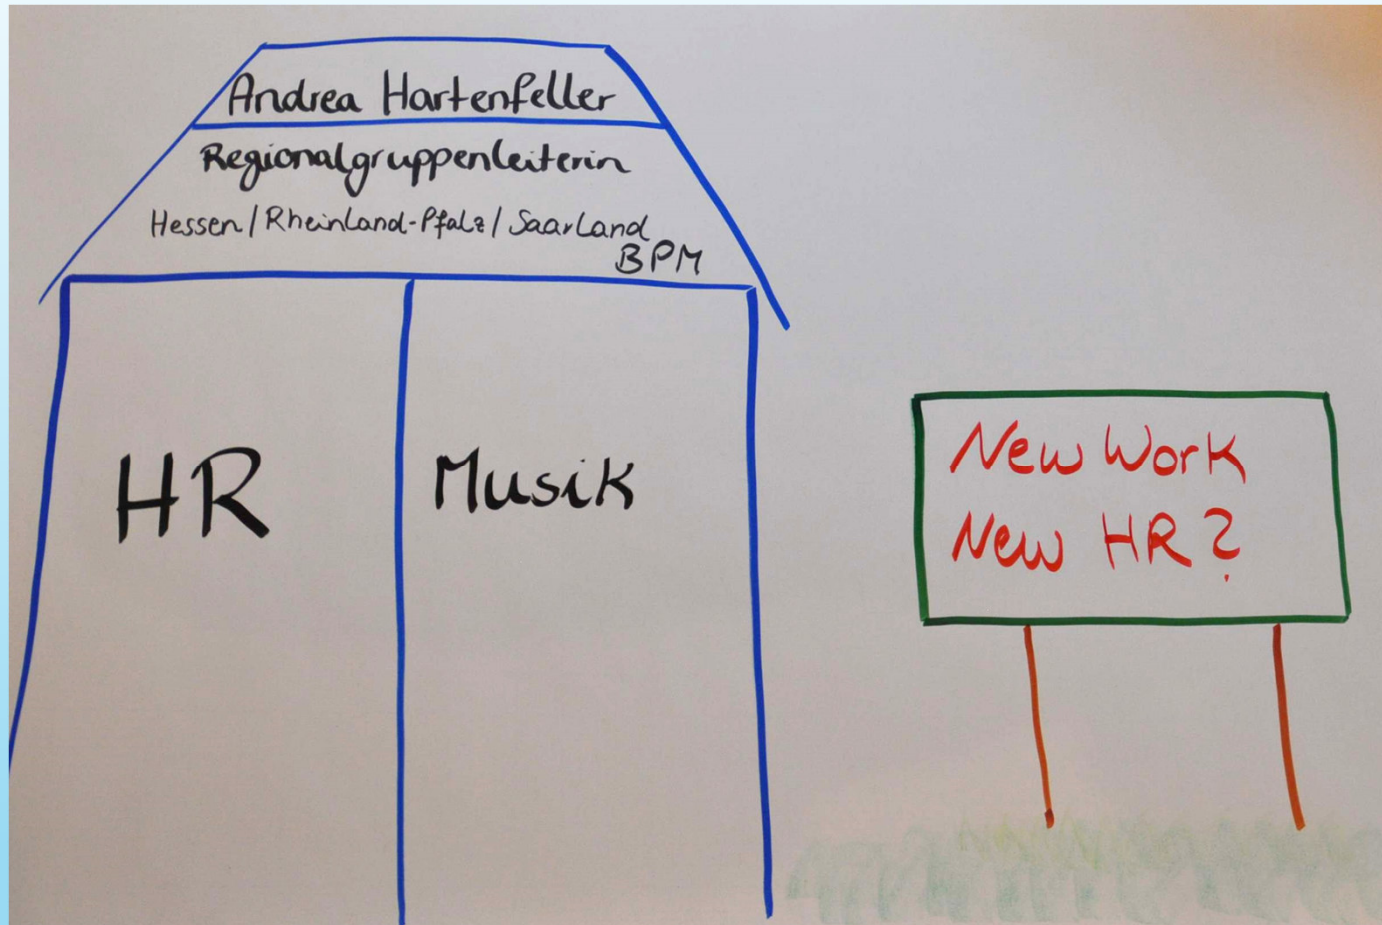 Andrea Hartenfeller
Regionalgruppenleiterin
Hessen / Rheinland-Pfalz / Saarland
BPM
HR
Musik
New Work
New HR?